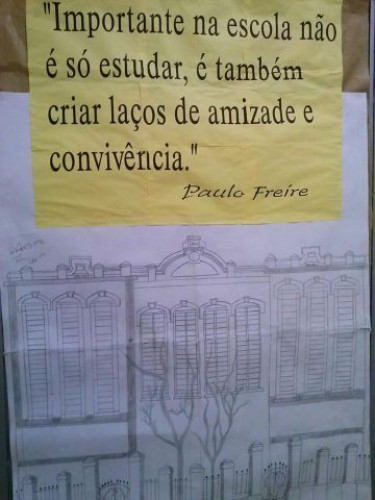 "Importante na escola não
é só estudar, é também
criar laços de amizade e
convivência."
Paulo Freire